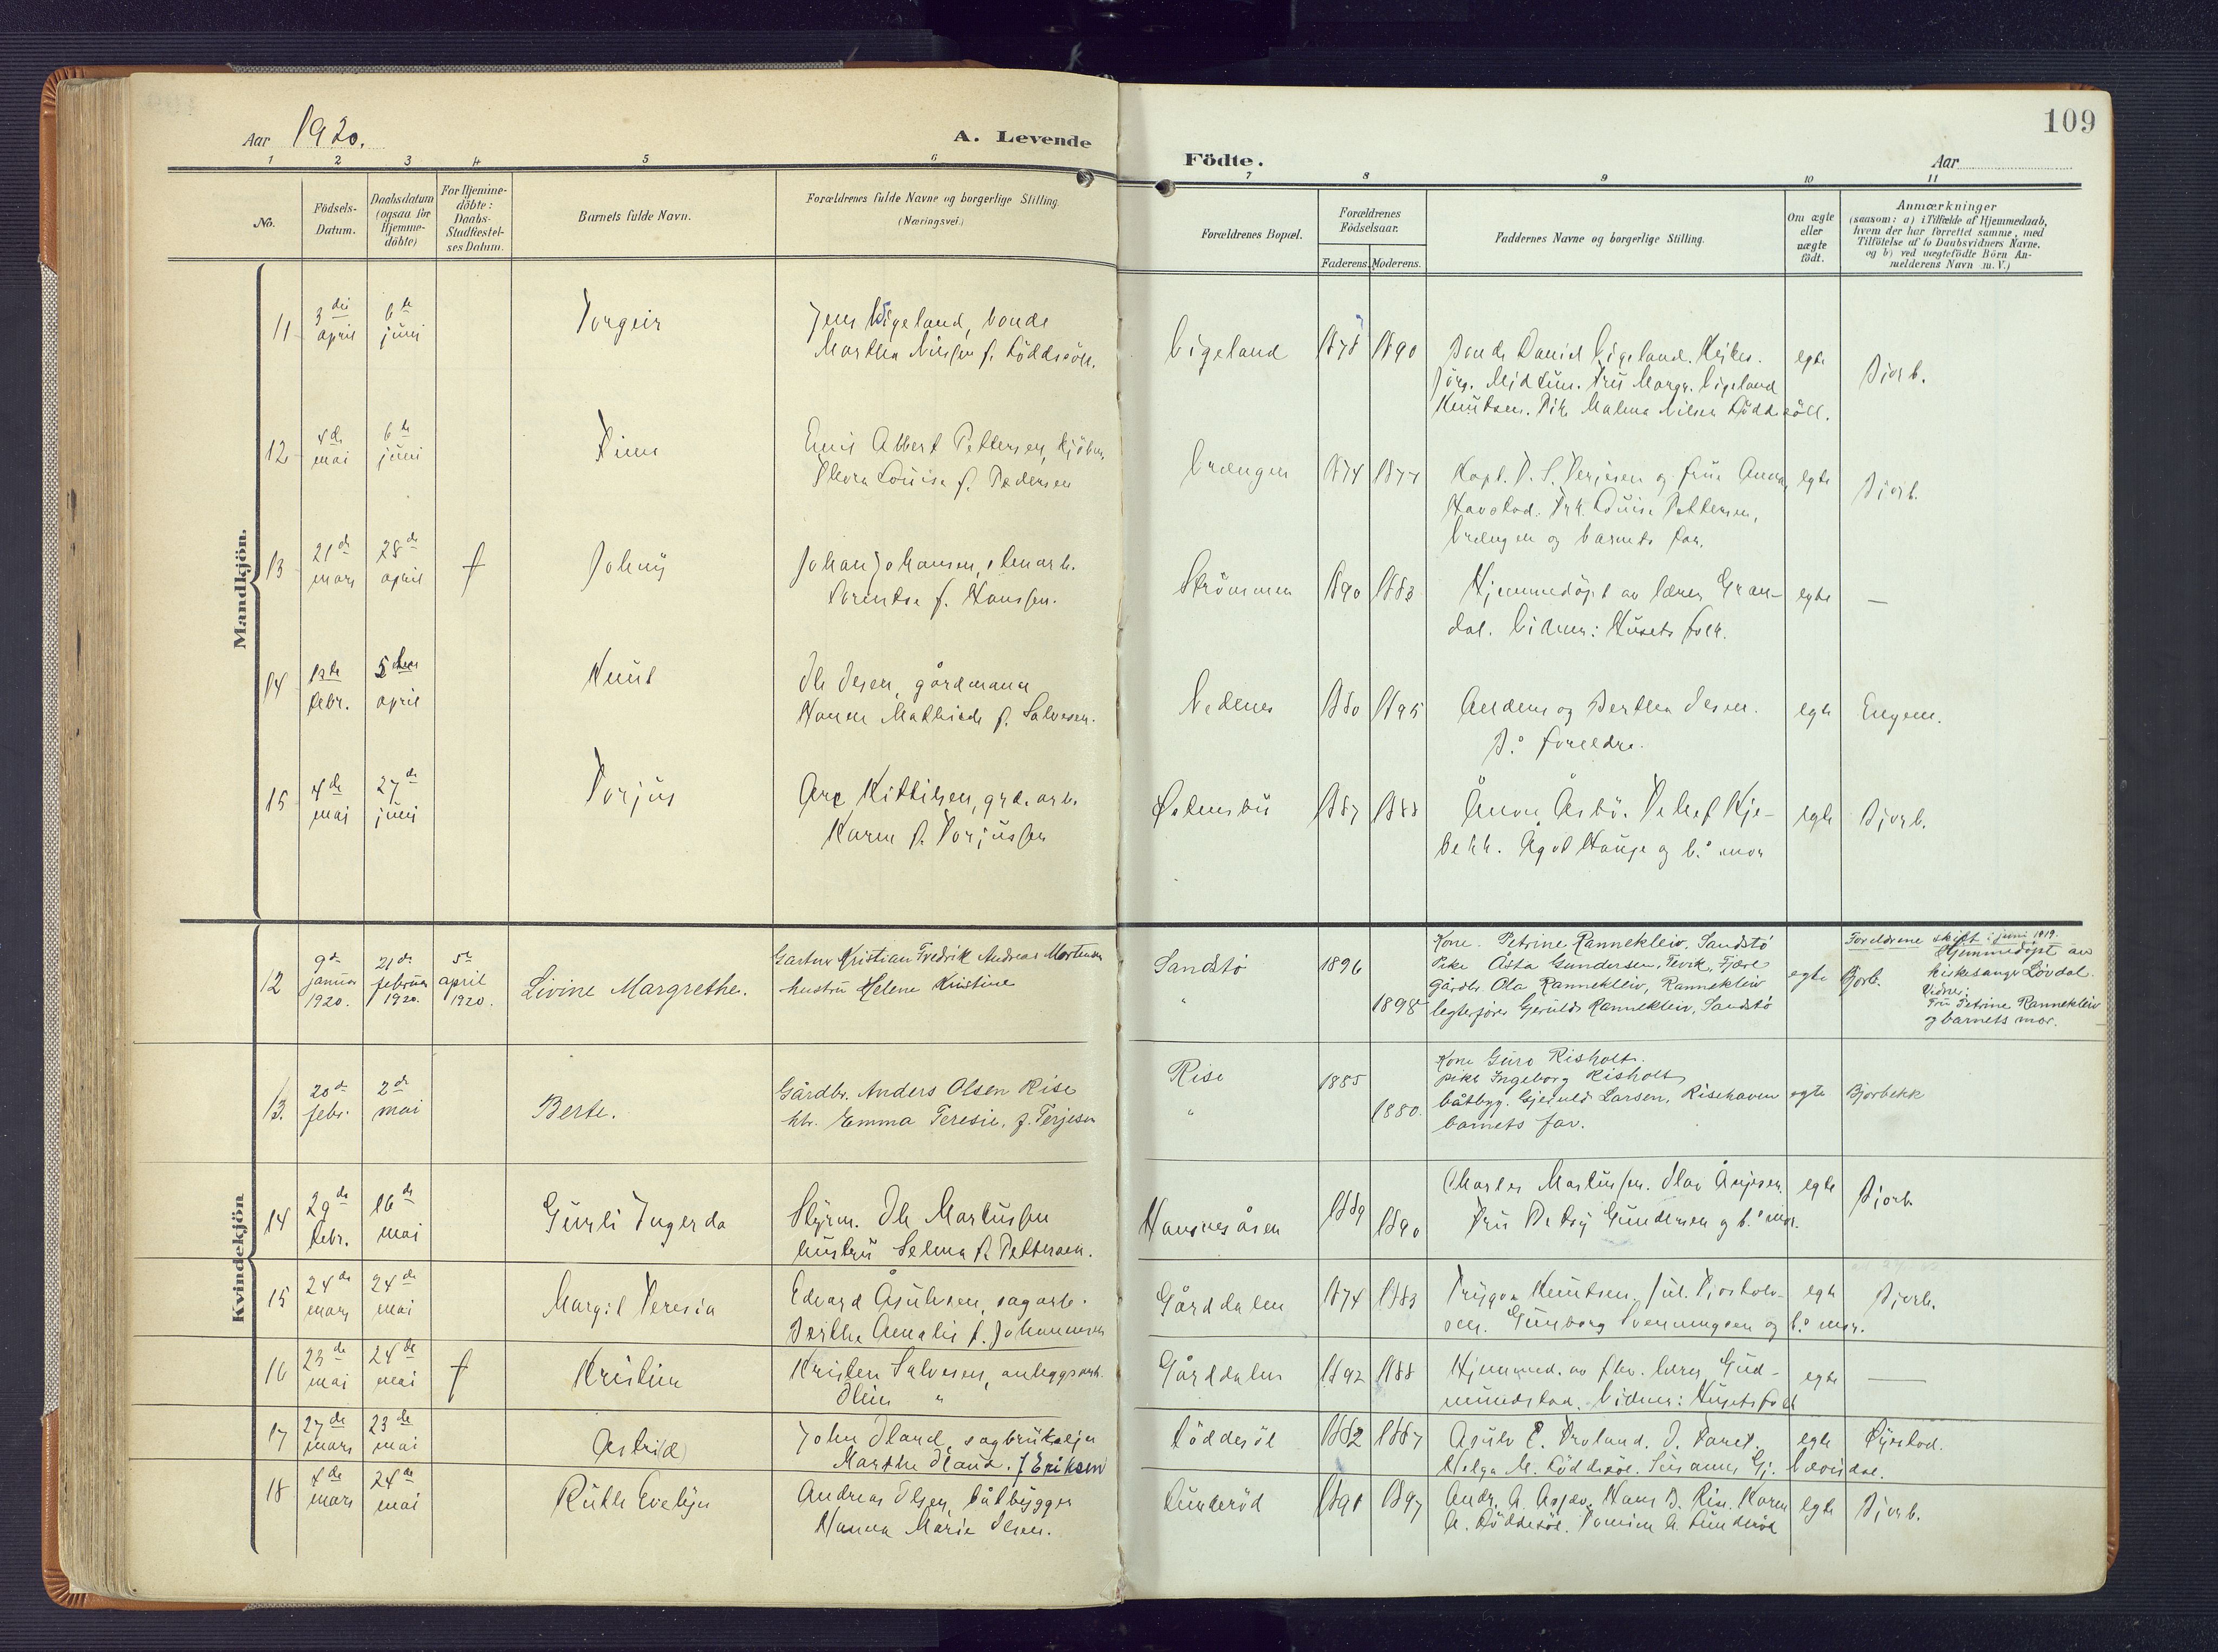 109
Aar 1920.
A. Levende
Födte.
Aar
1 2 3 4 5 6 7 8 9 10 11
No.
Födsels-
Datum.
Daabsdatum
(ogsaa for
Hjemme-
döbte)
For Hjemme-
döbte:
Daabs-
Stadfæstel-
ses Datum.
Barnets fulde Navn.
Forældrenes fulde Navne og borgerlige Stilling.
(Næringsvei.)
Forældrenes Bopæl.
Forældrenes
Födselsaar.
Faderens. Moderens.
Faddernes Navne og borgerlige Stilling.
Om ægte
eller
uægte
födt.
Anmærkninger
(saasom: a) i Tilfælde af Hjemmedaab,
hvem der har forrettet samme, med
Tilföielse af to Daabsvidners Navne,
og b) ved uægtefödte Börn An-
melderens Navn m. V.)
Mandkjön.
11
3die april
6te juni
Torgeir
Jens Vigeland, bonde
Martha Nilssen f. Löddesöll.
Vigeland
1878 1890
Bonde Daniel Vigeland.
Jörg. Midtun. Fru Margr. Vigeland
Knutsen. Pike Malma Nilsen Löddesöll.
egte
Bjorb.
12
4de mai
6te juni
Finn
Emil Albert Pettersen, kjöbm.
Thora Louise f. Pedersen
Vrængen
1874 1877
Kapt. T. S. Terjesen og frue Anna,
Havstad. Frk. Louise Pettersen,
Vrængen og barnets far.
egte
Bjorb.
13
21de mars
28de april
†
Johny
Johan Johansen, elmarb.
Lorentse f. Hanssen.
Strömmen
1890 1883
Hjemmedöpt av lærer Gran-
dal. Vidner: Husets folk.
egte
—
14
1ste febr.
5te april
Knut
Ole Olsen, gårdmann
Hanna Mathilde f. Salvesen.
Nedenes
1880 1895
Anders og Berthea Olsen.
B.s foreldre.
egte
Engene.
15
4de mai
27de juni
Torjus
Are Kittilsen, grd. arb.
Karen f. Torjussen
Østensbu
1887 1888
Ånon Åsbö. Detlef Kje-
bekk. Ågot Hauge og b.s mor
egte
Bjorb.
Kvindekjön
12
9de januar 1920.
21de februar 1920.
5te april 1920.
Livine Margrethe.
Gartner Kristian Fredrik Andreas Mortensen
hustru Helene Kristine
Sandstö
"
1896
1898
Kone Petrine Rannekleiv, Sandstö
Pike Åsta Gundersen, Fevik, Fjære
Gårdbr. Ola Rannekleiv, Rannekleiv
legterfører Gerulds Rannekleiv, Sandstö
egte
Bjorb.
Foreldrene skift i juni 1919.
Hjemmedöpt av
kirkesanger Lövdal.
Vidner:
Fru Petrine Rannekleiv
og barnets mor.
13.
20de febr.
2de mai
Berte.
Gårdbr. Anders Olsen Rise
htr. Emma Teresie, f. Terjesen
Rise
"
1885
1880.
Kone Guro Risholt.
pike Ingeborg Risholt
båtbyg. Gjeruld Larsen, Risehaven
barnets far.
egte
Bjorbekk
14
29de febr.
16de mai
Gunli Ingerda
Styrm. Ole Martinssen
hustru Selma f. Pettersen.
Hansnesåsen
1889
1890
Charles Martinssen. Olav
Fru Betsy Gundersen og b.s mor.
egte
Bjorb.
15
24de mars
24de mai
Margit Teresia
Edvard Åsulvsen, sagarb.
Berthe Amalie f. Johannessen
Gårddalen
1874 1883
Trygve Knutsen. Jul. Torshols-
sen. Gunborg Svenningsen og b.s mor.
egte
Bjorb.
16
23de mai
24de mai
†
Kristine
Kristen Salvesen, anleggsarb.
Oline "
Gårddalen
1892 1888
Hjemmed. av fhv. lærer Gud-
mundstad. Vidner: Husets folk
egte
—
17
27de mars
23de mai
Astri(d)
John Oland, sagbrukseier
Marthe Oland. f Eriksen
Löddesöl
1882 1887
Asulv E. Froland. O. Taret.
Helga M. Löddesöl. Susanne Gj. Vævisdal.
egte
Øyestad.
18
4de mars
24de mai
Ruth Evelyn
Andreas Olsen, båtbygger
Hanna Marie Olsen.
Lunderöd
1891 1897
Andr. A. Asdal. Hans B. Rise. Karen
A. Löddesöl. Tomine A. Lunderöd
egte
Bjorb.